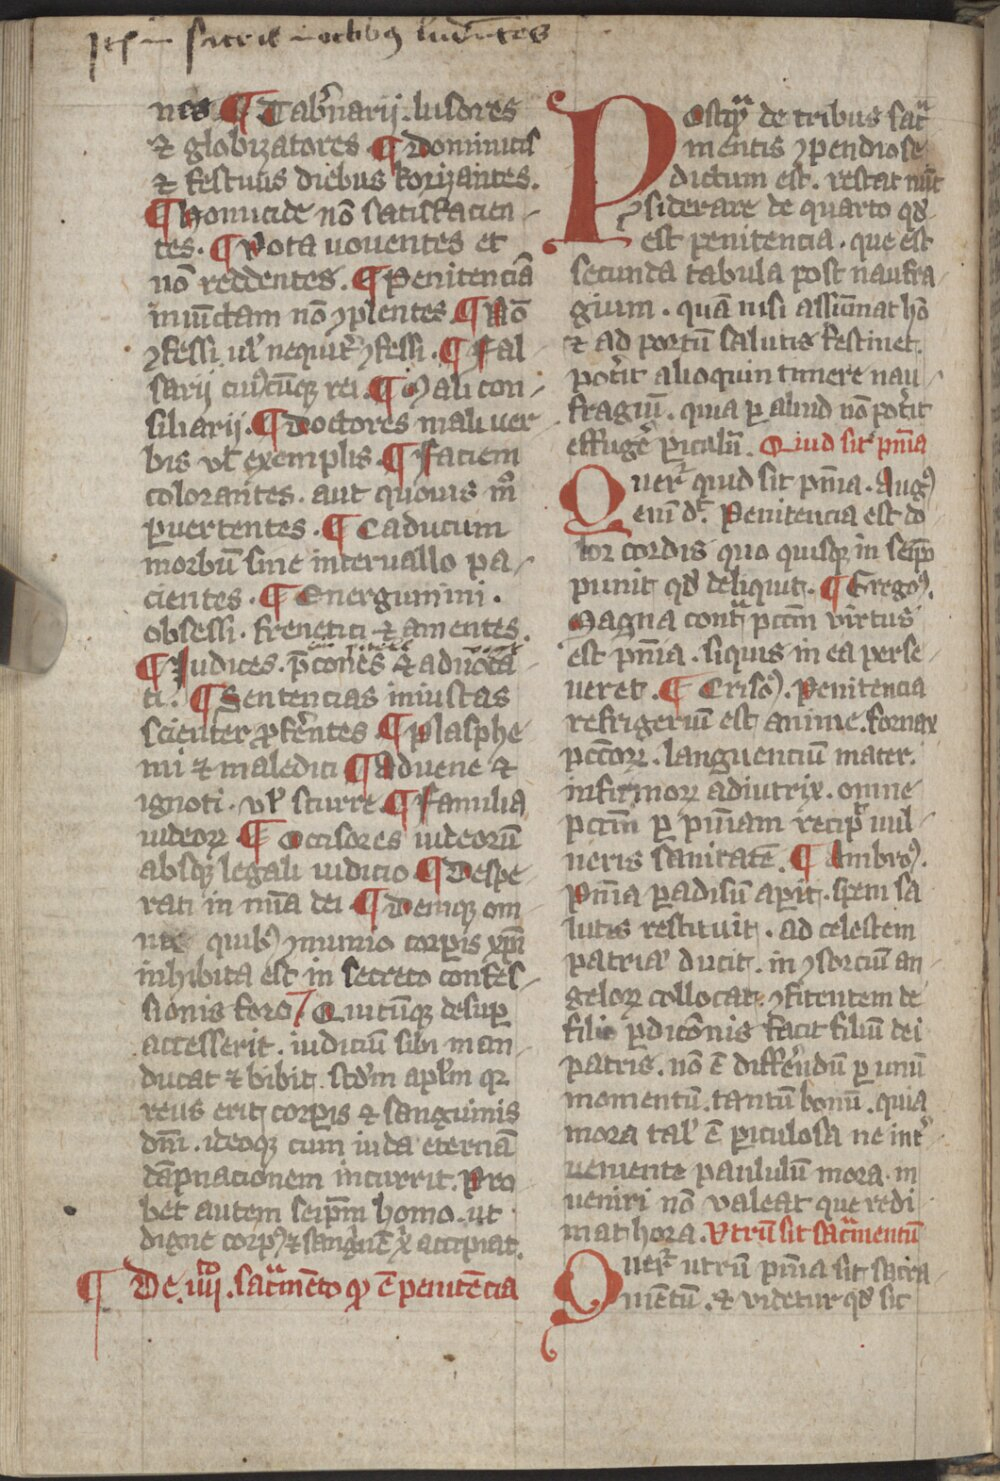 Itē in sacris noctibus ludentes
nes ¶ Tab̄narij. lusores
⁊ globizatores ¶ Dominicis
⁊ festiuis diebus korizantes.
¶ Homicide nō satisfacien-
tes. ¶ Vota uouentes et
nō reddentes. ¶ Penitenciā
iniūctam nō ꝯplentes ¶ Nō
ꝯfessi ul̓ nequit̓ ꝯfessi. ¶ Fal-
sarij cui9cūqꝫ rei. ¶ Mali con-
siliarij. ¶ Doctores mali uer
bis vl̓ exemplis. ¶ Faciem
colorantes. aut quouis mo
ꝑuertentes. ¶ Caducum
morbū sine interuallo pa-
cientes. ¶ Energumini.
obsessi. frenetici ⁊ amentes.
¶ Judices. p̄cones ⁊ aduoca
ti. ¶ Sentencias iniustas
scienter ꝓfe̓ntes ¶ Plasphe
mi ⁊ maledici ¶ Aduene ⁊
ignoti. vl̓ scurre. ¶ Familia
iudeoꝝ ¶ Occisores iudeorū
absqꝫ legali iudicio ¶ Despe-
rati in mīa dei. ¶ Deniqꝫ om
nes quibꝰ ꝯmunio corꝑis xp̄i
inhibita est in secreto confes-
sionis foro Quicūqꝫ desuꝑ
accesserit. iudiciū sibi man-
ducat ⁊ bibit. scd̄m apl̄m qꝛ
reus erit corꝑis ⁊ sanguinis
dn̄i. ideoqꝫ cum iuda eternā
dāpnacionem incurrit. Pro
bet autem seip̄m homo. ut
digne corpꝰ ⁊ sanguēꝫ xᵢ accipiat.
¶ De. iiijto. sacᵃmēto qd̓ ē penitēcia
Postqᵃꝫ de tribus sacᵃ
mentis ꝯpendiose
dictum est. restat nūc
ꝯsiderare de quarto qd̓
est penitencia. que est
secunda tabula post naufra-
gium. quā nisi assūmat hō
⁊ ad portū salutis festinet.
pot̓it alioquin timere nau-
fragiū. quia ꝑ aliud nō pot̓it
effuge̓ ꝑiculū. Quid sit pn̄ia
Querit̓ quid sit pn̄ia. Augꝰ
Enī dt̓. Penitencia est do
lor cordis quo quisqꝫ in seip̄o
punit qd̓ deliquit. ¶ Gregoꝰ.
Magna contᵃ pctm̄ virtus
est pn̄ia. siquis in ea perse-
ueret. ¶ Crisoꝰ. Penitencia
refrigeriū est anime. fornax
pctōꝝ. languenciū mater.
infirmoꝝ adiutrix. omne
pctm̄ ꝑ pn̄iam recipit uul-
neris sanitatē. ¶ Ambroꝰ.
Pn̄ia ꝑadisū aꝑit. spem sa
lutis restituit. ad celestem
patriā ducit. in ꝯsorciū an-
geloꝝ collocat. ꝯfitentem de
filio ꝑdicōnis facit filiū dei
patris. nō ē diffe̓ndū ꝑ unū
momentū. tantū bonū. quia
mora tal̓ ē ꝑiculosa ne int̓
ueniente paululū mora. in
ueniri nō valeat que redi
mat hora. Vtrū sit sacᵃmentū
Querit̓ utrū pn̄ia sit sacra-
mentū. ⁊ videtur qd̓ sit